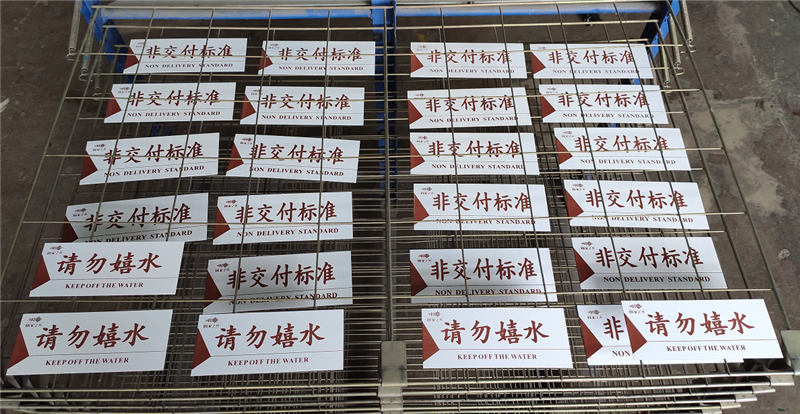 非交付标准
NON DELIVERY STANDARD
非交付标准
NON DELIVERY STANDARD
非交付标准
NON DELIVERY STANDARD
非交付标准
NON DELIVERY STANDARD
非交付标准
NON DELIVERY STANDARD
非交付标准
NON DELIVERY STANDARD
非交付标准
NON DELIVERY STANDARD
非交付标准
NON DELIVERY STANDARD
非交付标准
NON DELIVERY STANDARD
非交付标准
NON DELIVERY STANDARD
非交付标准
NON DELIVERY STANDARD
非交付标准
NON DELIVERY STANDARD
非交付标准
NON DELIVERY STANDARD
非交付标准
NON DELIVERY STANDARD
非交付标准
NON DELIVERY STANDARD
非交付标准
NON DELIVERY STANDARD
请勿嬉水
KEEP OFF THE WATER
非交付标准
NON DELIVERY STANDARD
非交付标准
NON DELIVERY STANDARD
非交付标准
NON DELIVERY STANDARD
请勿嬉水
KEEP OFF THE WATER
请勿嬉水
KEEP OFF THE WATER
请勿嬉水
KEEP OFF THE WATER
非
NON
请勿嬉水
KEEP OFF THE WATER